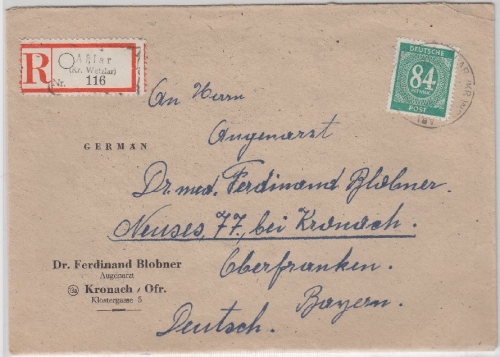 R
Aßlar
(Kr. Wetzlar)
Nr. 116
DEUTSCHE
84
PFENNIG
POST
An Herrn
Augenarzt
GERMAN
Dr. med. Ferdinand Blobner.
Neuses, 77, bei Kronach.
Oberfranken.
Bayern.
Deutsch.
Dr. Ferdinand Blobner
Augenarzt
Kronach / Ofr.
Klostergasse 5